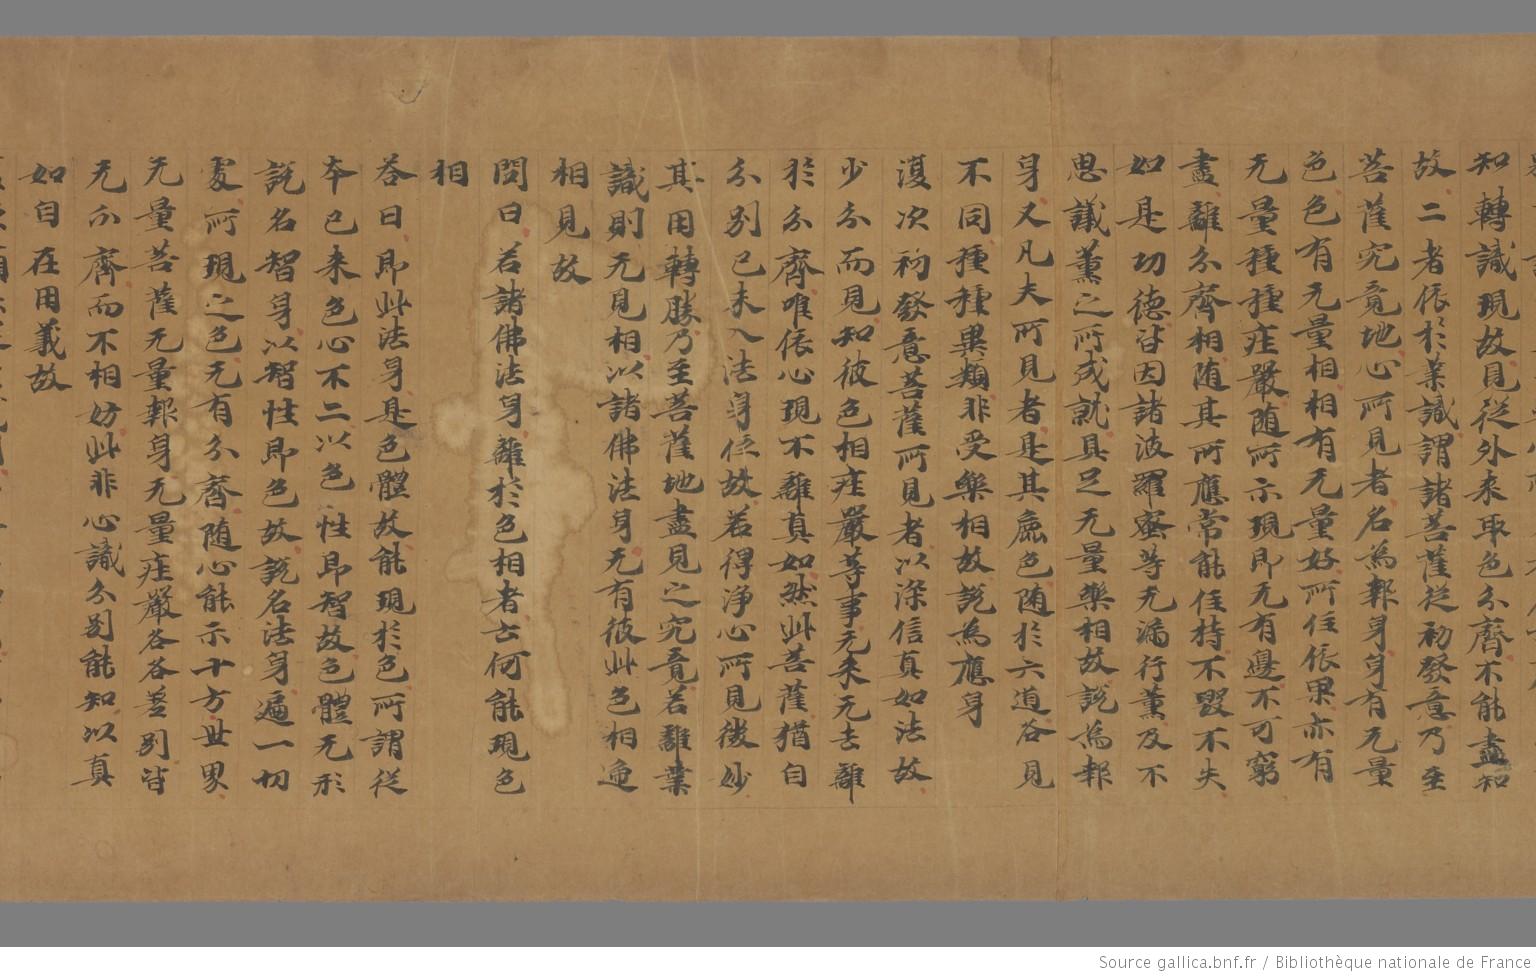 知轉識現故見從外来取色分齊不能盡知
故二者依於業識謂諸菩薩從初發意乃至
菩薩究竟地心所見者名為報身身有无量
色色有无量相相有无量好所住依果亦有
无量種種庄嚴随所示現即无有邊不可窮
盡離分齊相随其所應常能住持不毀不失
如是切德皆因諸波羅蜜等无漏行薰及不
思議薰之所成就具足无量樂相故說為報
身又凡夫所見者是其麁色随於六道各見
不同種種異類非受樂相故說為應身
復次初發意菩薩所見者以深信真如法故
少分而見知彼色相庄嚴等事无来无去離
於分齊唯依心現不離真如然此菩薩猶自
分別已未入法身位故若得淨心所見微妙
其用轉勝乃至菩薩地盡見之究竟若離業
識則无見相以諸佛法身无有彼此色相迭
相見故
問曰若諸佛法身離於色相者云何能現色
相
荅曰即此法身是色體故能現於色所謂從
本已来色心不二以色性即智故色體无形
說名智身以智性即色故說名法身遍一切
處所現之色无有分齊随心能示十方世界
无量菩薩无量報身无量庄嚴各各差別皆
无分齊而不相妨此非心識分別能知以真
如自在用義故